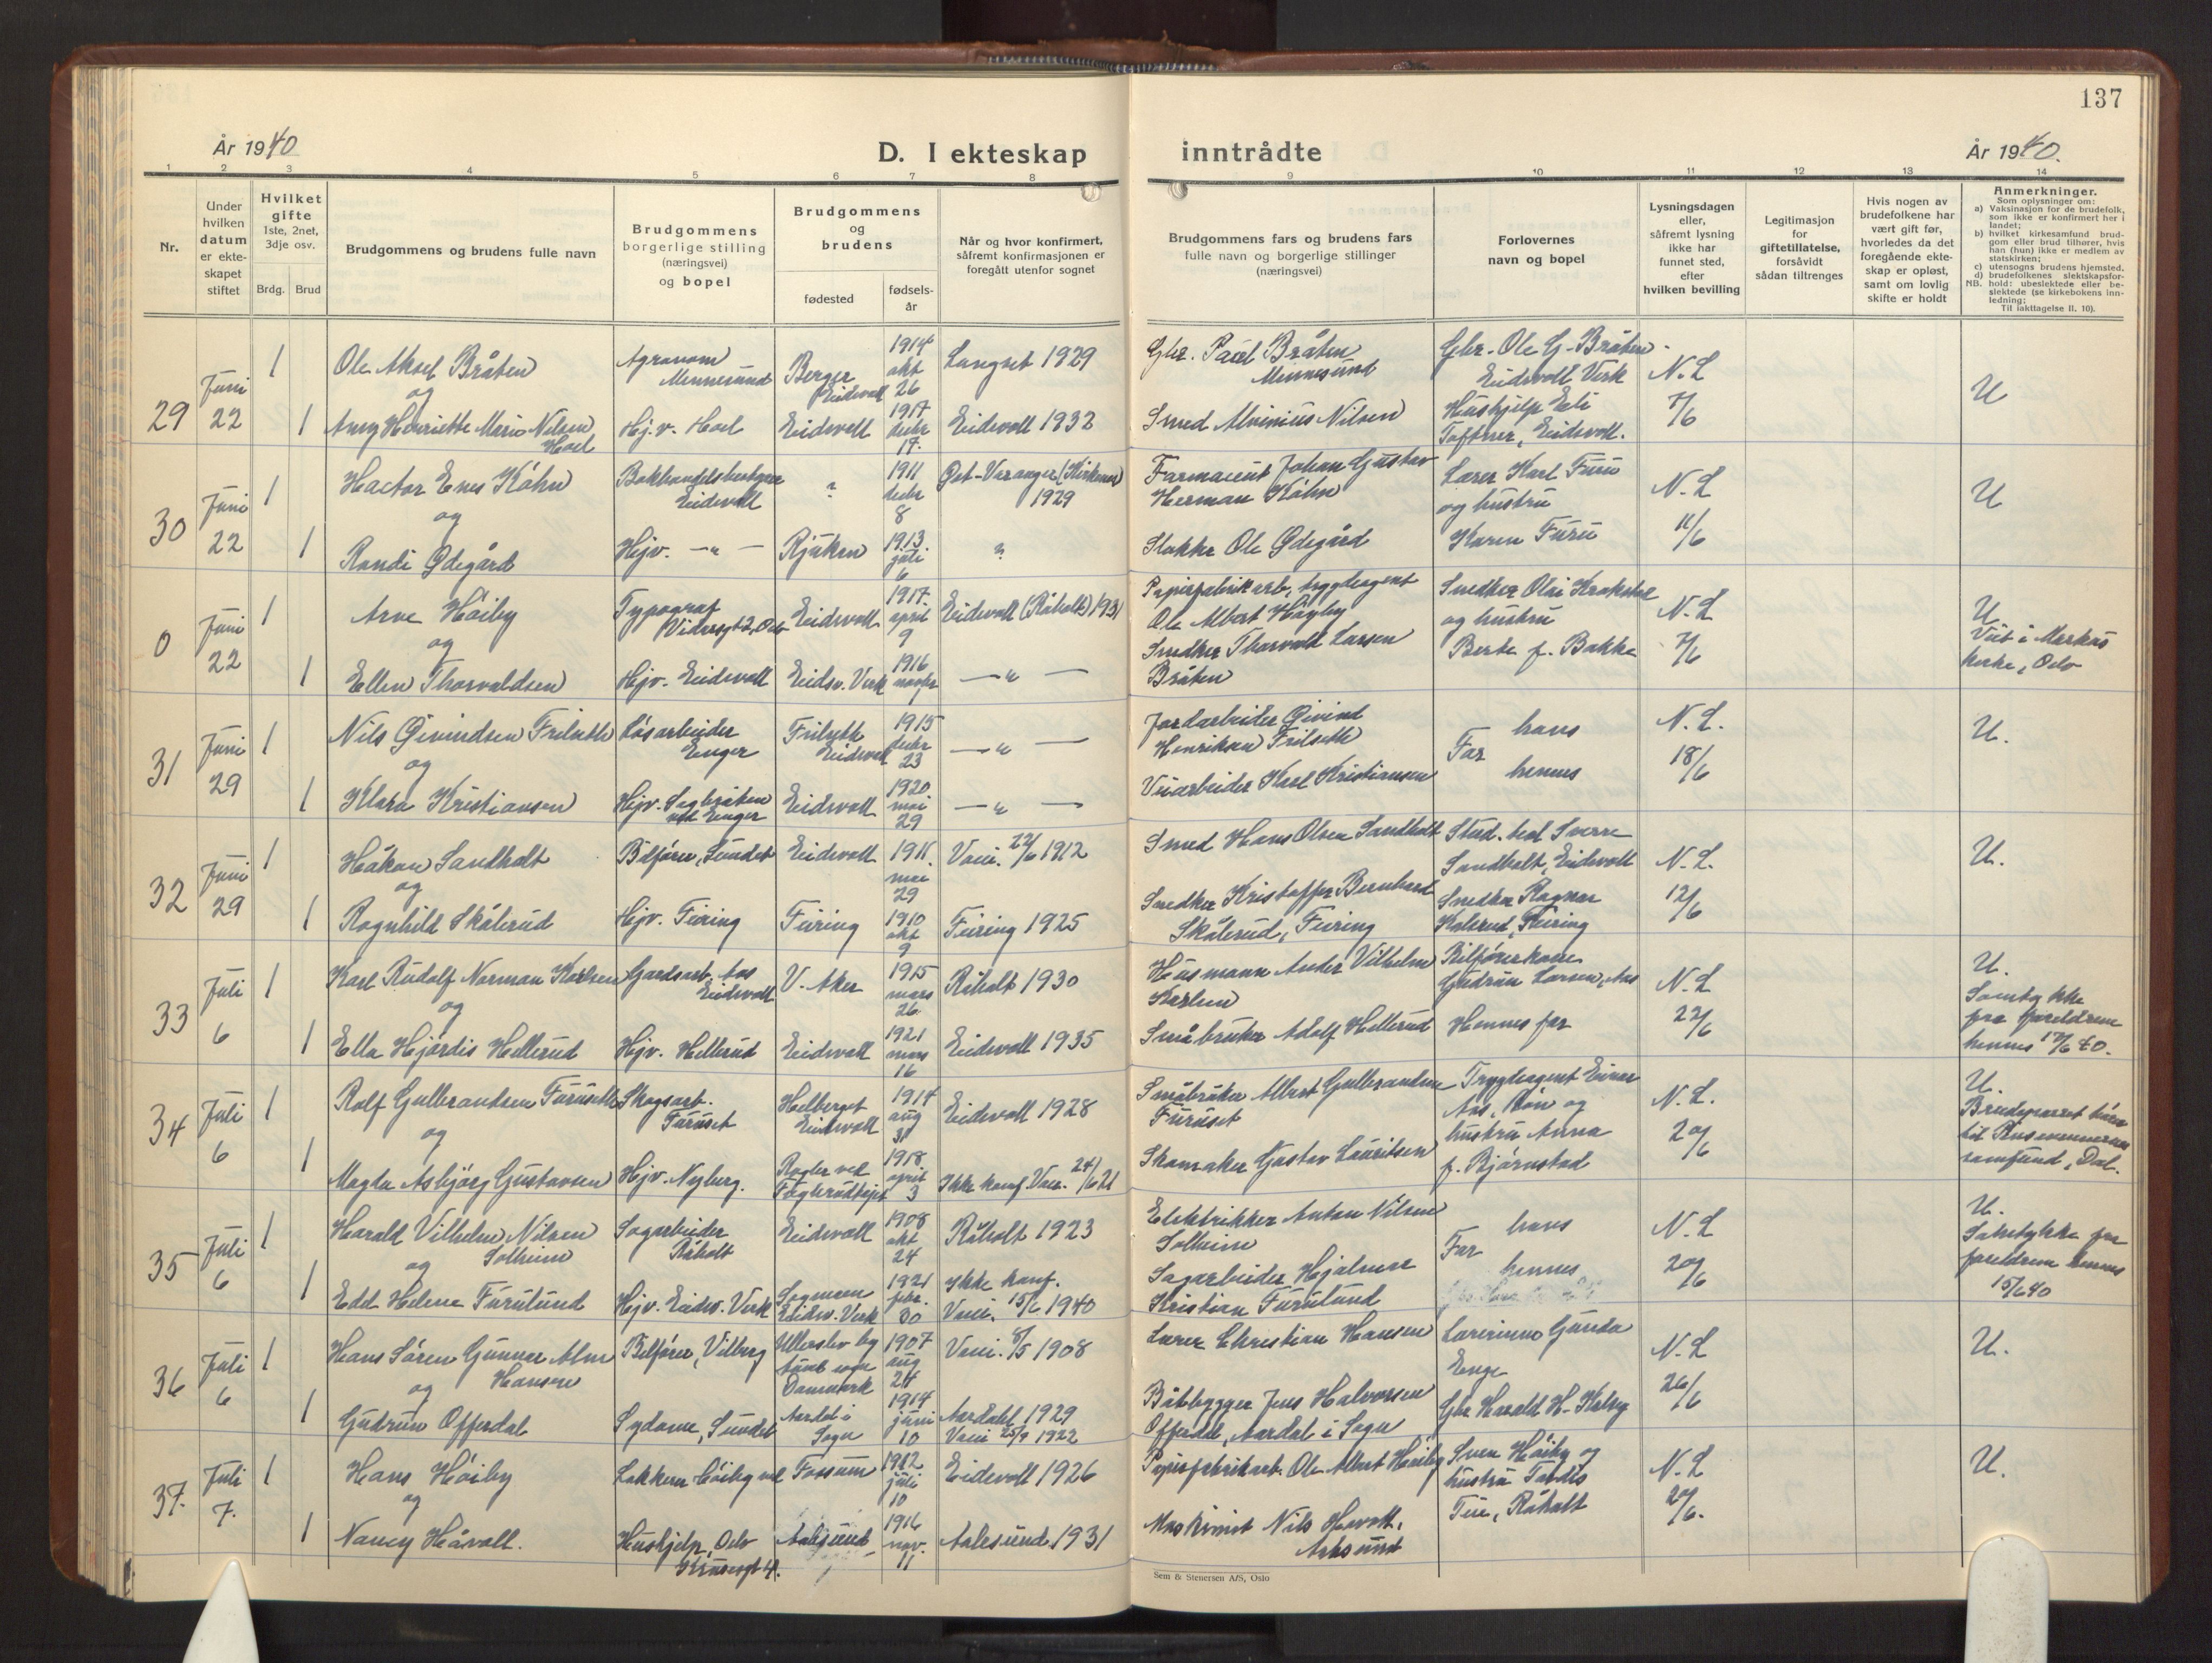 137
År 1940
D. I ekteskap
inntrådte
År 1940.
1 2 3 4 5 6 7 8 9 10 11 12 13 14
Nr.
Under
hvilken
datum
er ekte-
skapet
stiftet
Hvilket
gifte
1ste, 2net,
3dje osv.
Brdg. Brud
Brudgommens og brudens fulle navn
Brudgommens
borgerlige stilling
(næringsvei)
og bopel
Brudgommens
og
brudens
fødested
fødsels-
år
Når og hvor konfirmert,
såfremt konfirmasjonen er
foregått utenfor sognet
Brudgommens fars og brudens fars
fulle navn og borgerlige stillinger
(næringsvei)
Forlovernes
navn og bopel
Lysningsdagen
eller,
såfremt lysning
ikke har
funnet sted,
efter
hvilken bevilling
Legitimasjon
for
giftetillatelse,
forsåvidt
sådan tiltrenges
Hvis nogen av
brudefolkene har
vært gift før,
hvorledes da det
foregående ekte-
skap er opløst,
samt om lovlig
skifte er holdt
Anmerkninger.
Som oplysninger om:
a) Vaksinasjon for de brudefolk,
som ikke er konfirmert her i
landet;
b) hvilket kirkesamfund brud-
gom eller brud tilhører, hvis
han (hun) ikke er medlem av
statskirken;
c) utensogns brudens hjemsted.
d) brudefolkenes slektskapsfor-
NB. hold: ubeslektede eller be-
slektede (se kirkebokens inn-
ledning;
Til iakttagelse II. 10).
29
Juni
22
1
Ole Aksel Bråten
og
1
Anny Henriette Marie Nilsen
Hoel
Agronom
Minnesund
Hj.v. Hoel
Berger
Eidsvoll
Eidsvoll
1914
okt
26
1917
decbr
17.
Langset 1929
Eidsvoll 1932
Gbr. Paul Bråten
Minnesund
Smed Alvinius Nilsen
Gbr. Ole G. Bråten
Eidsvoll Verk
Hushjelp Eli
Toftner, Eidsvoll.
N.L
7/6
U
30
Juni
22
1
og
1
Randi Ødegård
Eidsvoll
Hjv. — " —
?
Rjukan
1911
decbr
8
1913
juli
6
Øst-Varanger (Kirkenes)
1929
?
Farmaceut Johan Gustav
Herman Köhn
Slakter Ole Ødegård
Lærer Karl Furu
og hustru
Karen Furu
N.L
11/6
U
0
Juni
22
1
Arne Höiby
og
1
Ellen Thorvaldsen
Typograf
Hjv. Eidsvoll
Eidsvoll
Eidsv. Verk
1917
april
9
1916
novbr
Eidsvoll (Råholt) 1931
— " —
Papirfabrikkarb., trygdeagent
Ole Albert Høyby
Snedker Thorvald Larsen
Bråten
og hustru
Berte f. Bakke
N.L
7/6
U
Viet i Markus
kirke, Oslo
31
Juni
29
1
Nils Øivindsen Frilseth
og
1
Klara Kristiansen
Løsarbeider
Enger
Hjv. Sagbråten
ved Enger
Frilseth
Eidsvoll
Eidsvoll
1915
decbr
23
1920
mai
29
— " —
— " —
Jordarbeider Øivind
Henriksen Frilseth
Veiarbeider Karl Kristiansen
Far
hans
hennes
N.L.
18/6
U.
32
Juni
29
1
Håkon Sandholt
og
1
Ragnhild Skålerud
Bilfører, Sundet
Hjv. Feiring
Eidsvoll
Feiring
1911.
mai
29
1910
okt
9
Vacc. 22/6 1912
Feiring 1925
Smed Hans Olsen Sandholt
Snedker Kristoffer Bernhard
Skålerud, Feiring
Stud. real Sverre
Sandholt, Eidsvoll
Snedker Ragnar
Kalerud, Feiring
N.L.
12/6
U.
33
Juli
6
1
Karl Rudolf Norman Karlsen
og
1
Ella Hjördis Hellerud
Gardsarb. Aas
Eidsvoll
Hjv. Hellerud
V. Aker
Eidsvoll
1915
mars
26
1921
mars
16
Råholt 1930
Eidsvoll 1935
Husmann Ander Vilhelm
Karlsen
Småbruker Adolf Hellerud
Bilførerkone
Gudrun Larsen, Aas
Hennes far
N.L
22/6
U.
Samtykke
fra foreldrene
hennes 17/6 40.
34
Juli
6
1
Rolf Gulbrandsen Furuseth
og
1
Magda Asbjörg Gustavsen
Skogsarb.
Furuset
Hjv. Nyberg.
Helberget
Eidsvoll
1914
aug
31
1918
april
3
Eidsvoll 1928
Ikke konf. Vacc. 24/6 21
Småbruker Albert Gulbrandsen
Furuset
Skomaker Gustav Lauritsen
Trygdeagent Einar
Aas, Røn og
hustru Anna
f. Bjørnstad
N.L.
20/6
U.
Brudeparret hører
til Pinsevennernes
samfund, Dal.
35
Juli
6
1
Harald Vilhelm Nilsen
og Solheim
1
Edel Helene Furulund
Sagarbeider
Råholt
Hjv. Eidsv. Verk
Eidsvoll
Sagmoen
Eidsv. Verk
1908
okt
24
1921
30
Råholt 1923
Ikke konf.
Vacc. 15/6 1940
Elektrikker Anton Nilsen
Solheim
Sagarbeider Hjalmar
Kristian Furulund
Far
hans
hennes
N.L
20/6
U.
Samtykke fra
foreldrene hennes
15/6 40
36
Juli
6
1
Hans Sören Gunnar Alm
og Hansen
1
Gudrun Offerdal
Bilfører, Vilberg
Sydame, Sundet
Ullerslev by
Danmark
Aardal i
Sogn
1907
aug
24
1914
juni
10
Vacc. 8/5 1908
Aardal 1929
Vacc 25/9 1922
Lærer Christian Hansen
Båtbygger Jens Halvorsen
Offerdal, Aardal i Sogn
Lærerinne Gunda
Enge
Gbr Harald H. Kalsy
N.L
26/6
U.
37.
Juli
7.
1
Hans Höiby
og
1
Nancy Håvoll.
Hushjelp, Oslo
Fossum
Aalesund
1912
juli
10
1916
nov.
11
Eidsvoll 1926
Aalesund 1931
Papirfabrikarb. Ole Albert Höiby
Maskinist Nils Havoll,
Aalesund
Sven Höiby og
hustru Tordis
Råholt
N.L
20/6.
U.
Sem & Stenersen A/S, Oslo